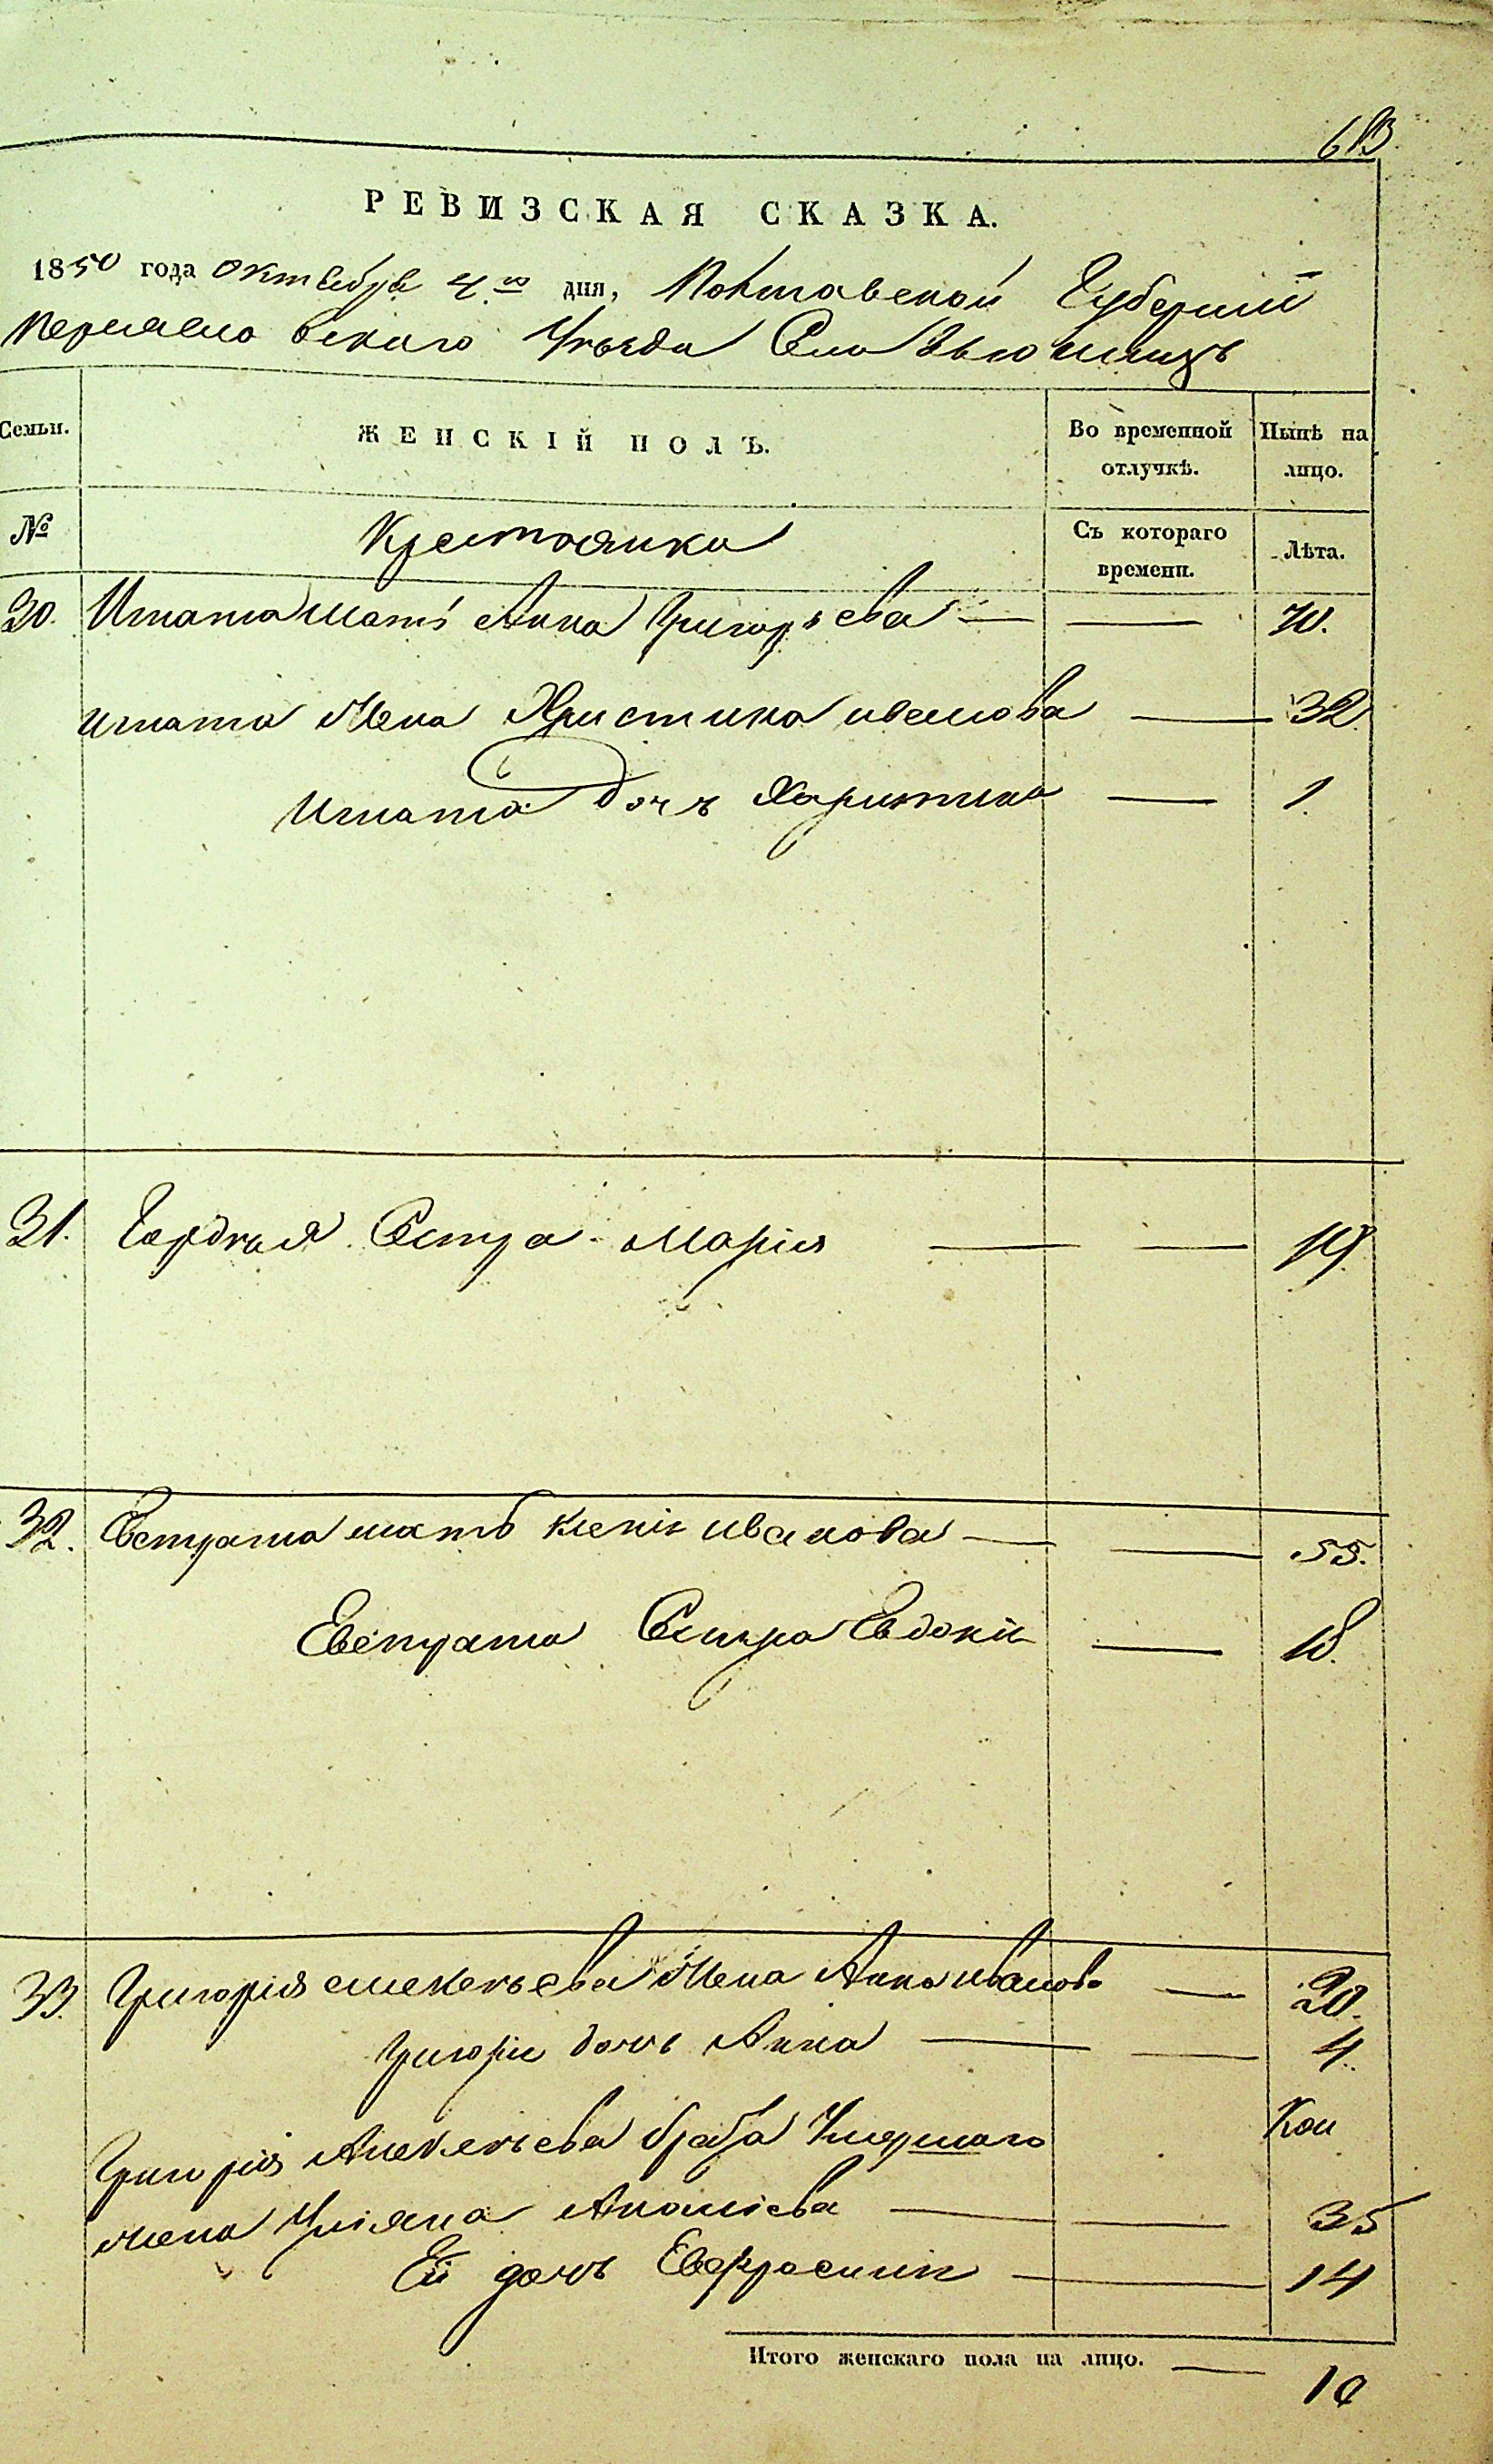 613
РЕВИЗСКАЯ СКАЗКА.
1850 года октября 4го дня, Полтавской Губернии
Переяславскаго Уезда Села Вьюнищъ
Семьи. ЖЕНСКІЙ ПОЛЪ. Во временной отлучкѣ. Нынѣ на лицо.
№ Крестьянки Съ котораго времени. Лѣта.
30. Игната мать Анна Григорьева — — 70.
Игната жена Христина иванова — 32
Игната дочь Харитина — 1.
31. Гордѣя Сестра Марія — — 19
32. Евстрата мать Ксенія иванова — — 55.
Евстрата Сестра Евдокія — 18.
33. Григорія алексѣева жена Анна иванова — 20.
Григорія дочь Анна — — 4.
Григорія Алексѣева брата Умершаго
жена Уліяна Ананіева — — 35
Ей дочь Евфросинія — 14
Итого женскаго пола на лицо. — 10